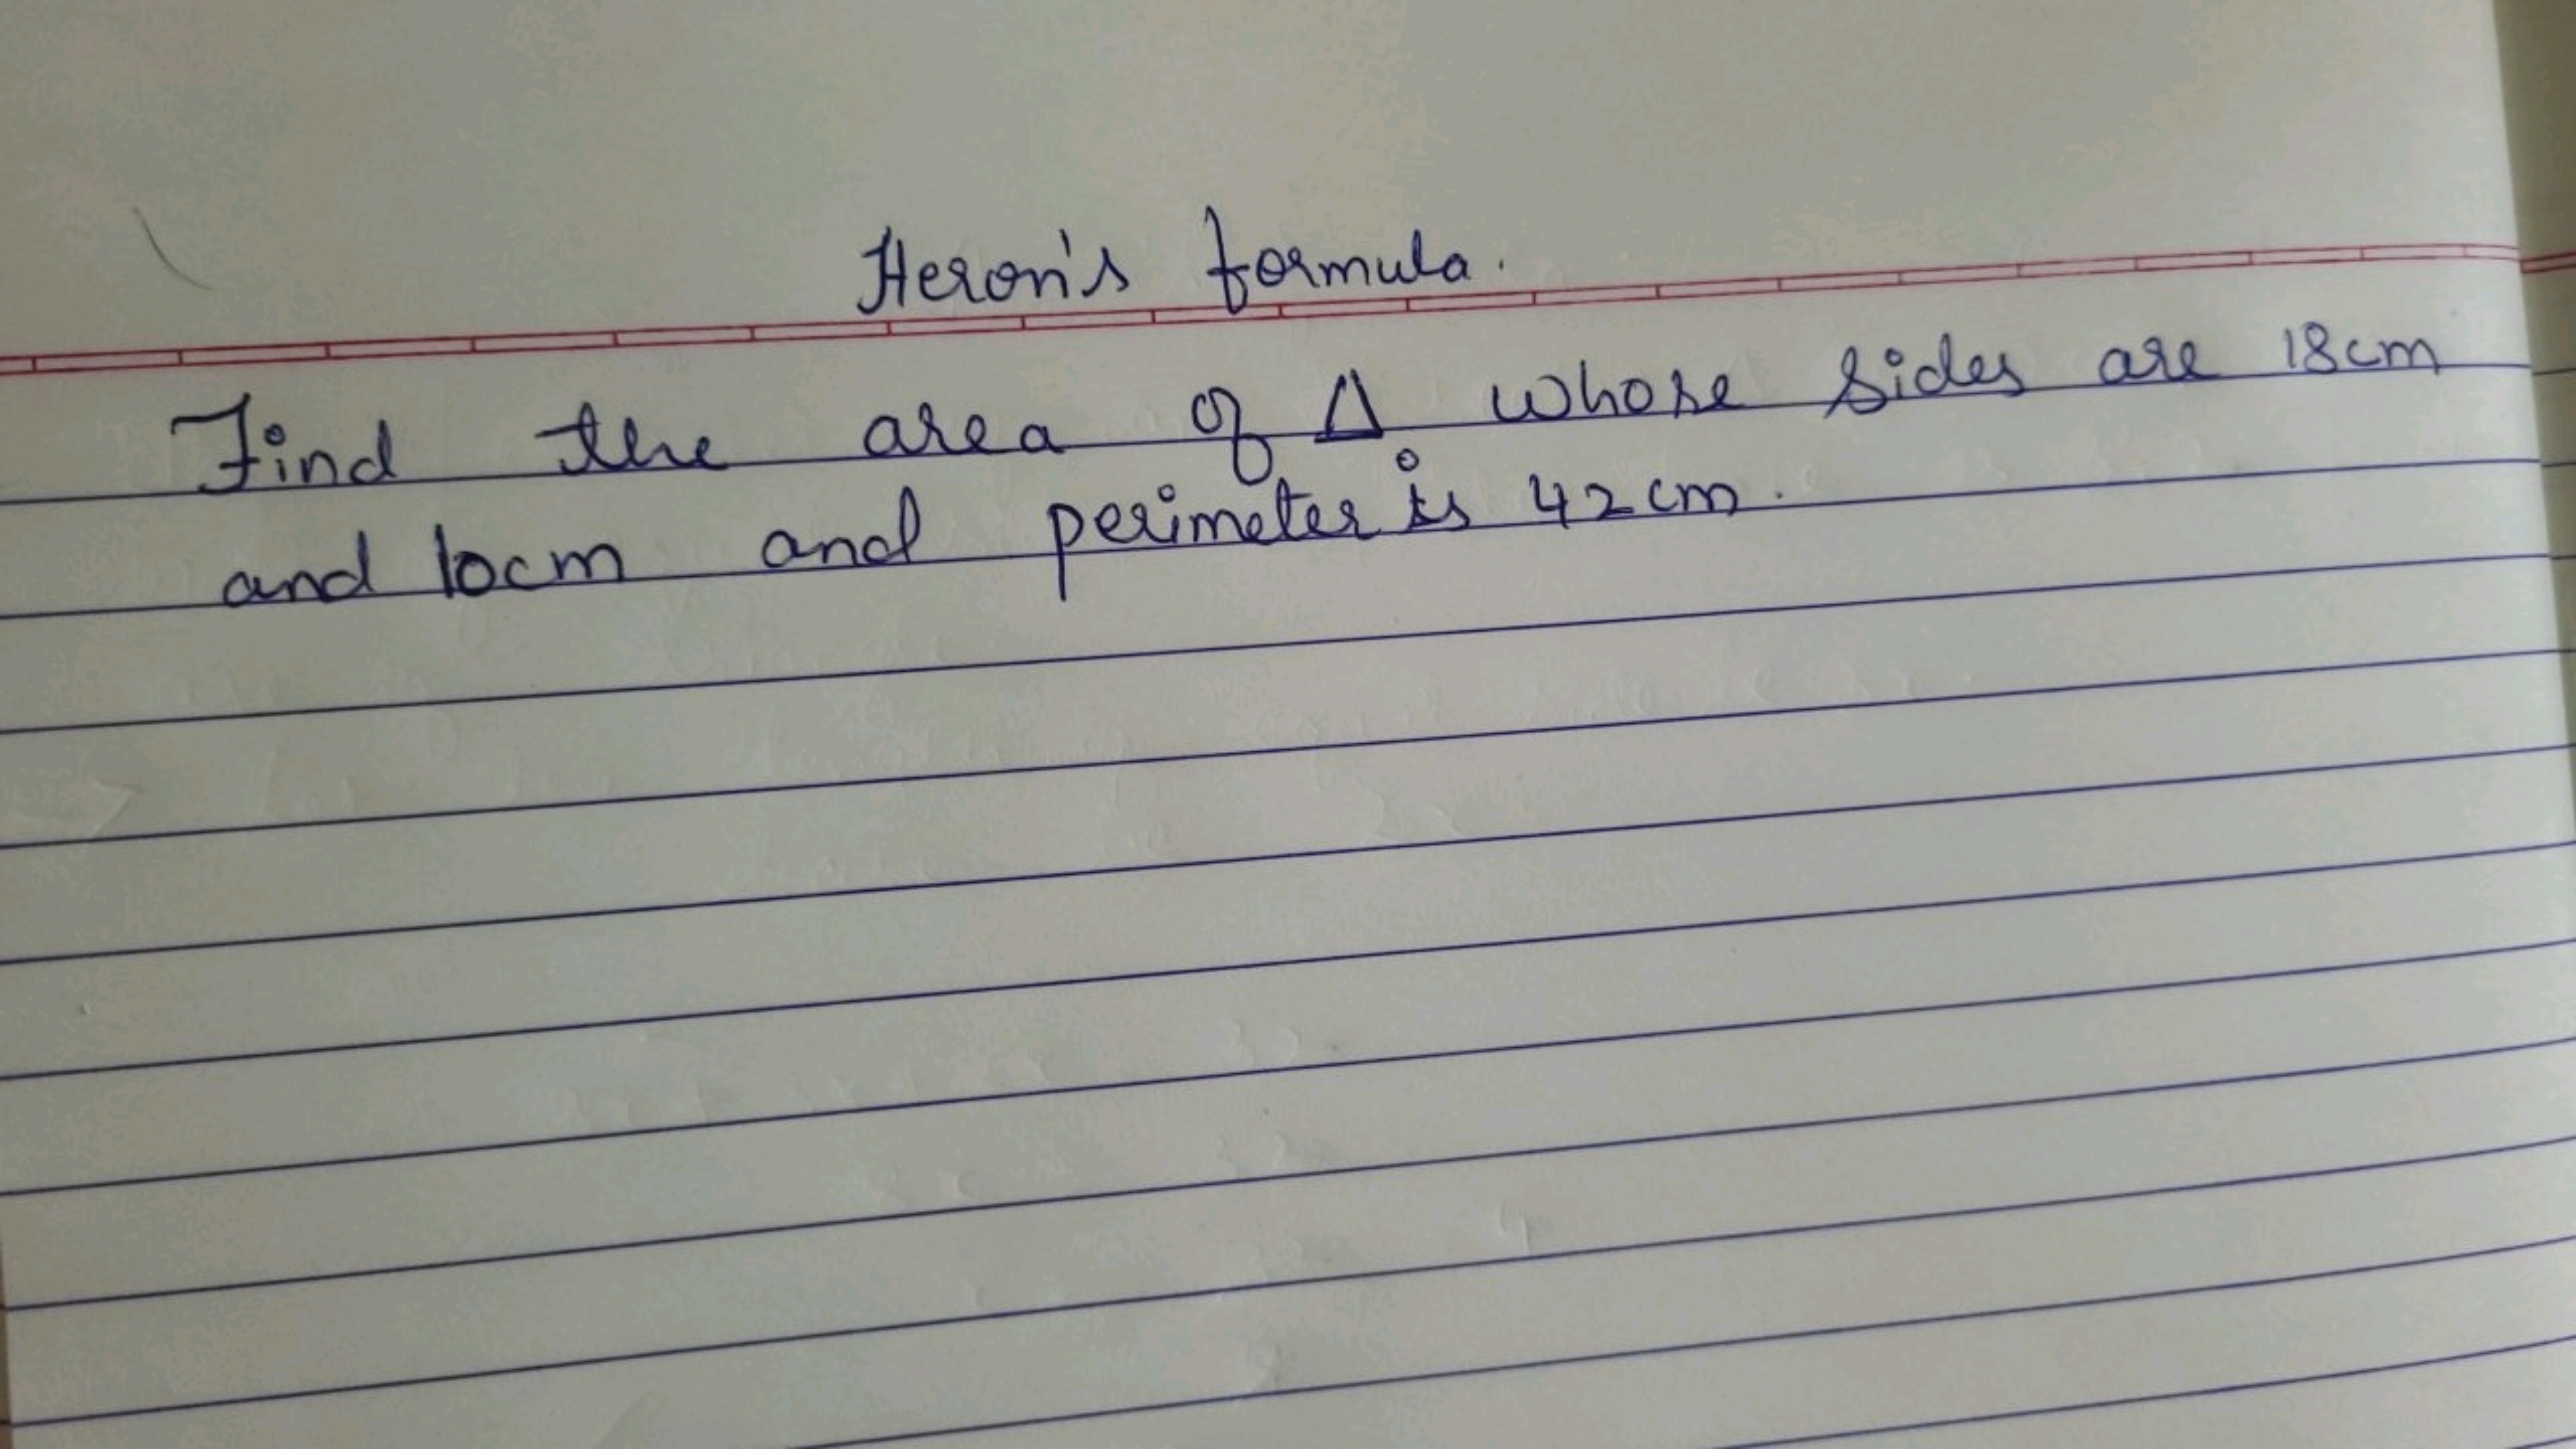 Heron's formula.
Find the area of Δ whose sides are 18cm
and 10cm and perimeter is 42cm.